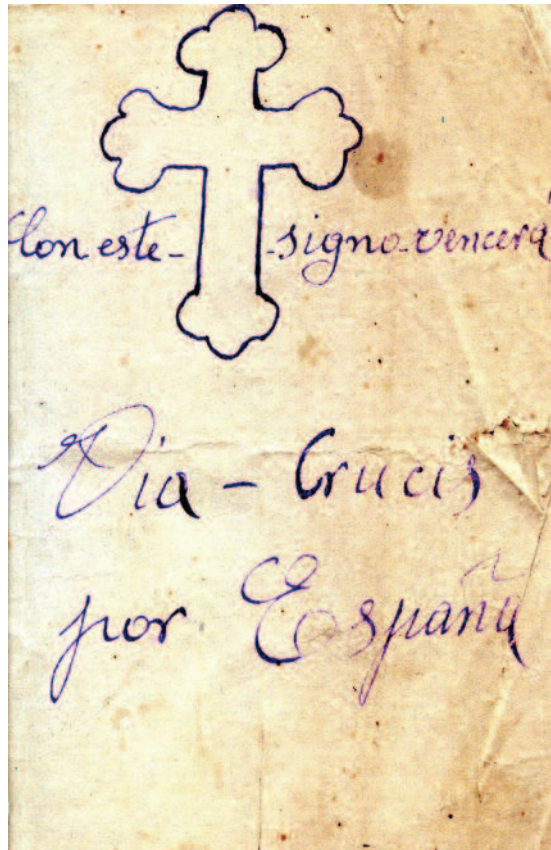 Con este - signo - vencerá
Via - Crucis
por España